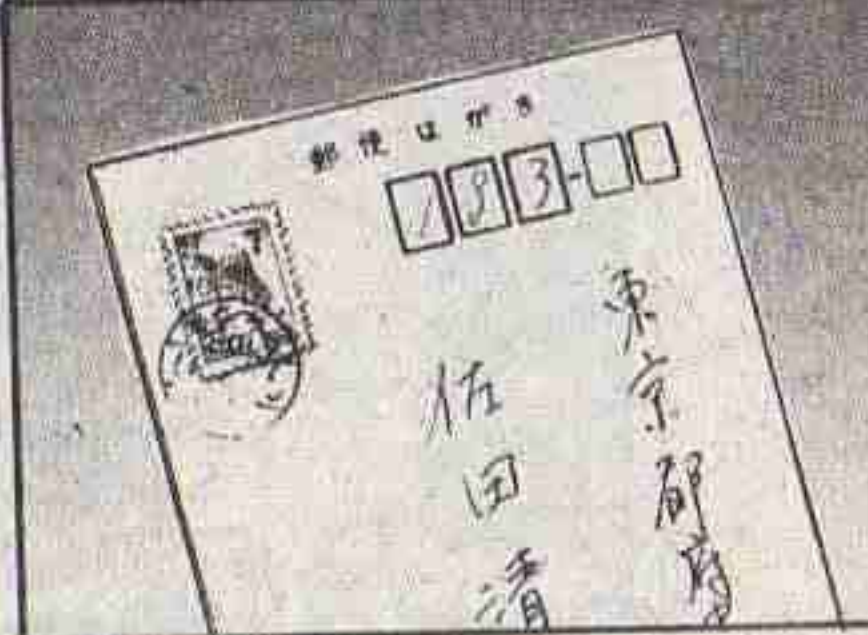 郵便はがき
183-
東京都府
佐田清